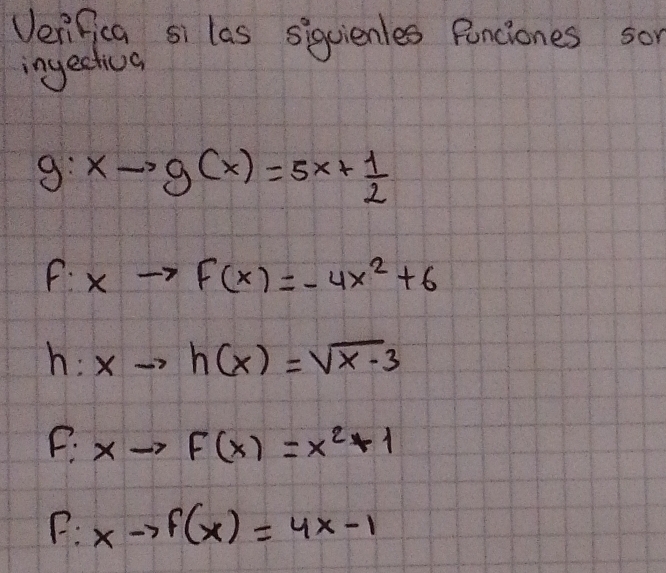 Verifica si las siguientes funciones son
inyectiva
g: x → g(x) = 5x + 1/2
f: x → F(x) = -4x² + 6
h: x → h(x) = √x-3
F: x → F(x) = x² + 1
F: x → f(x) = 4x - 1